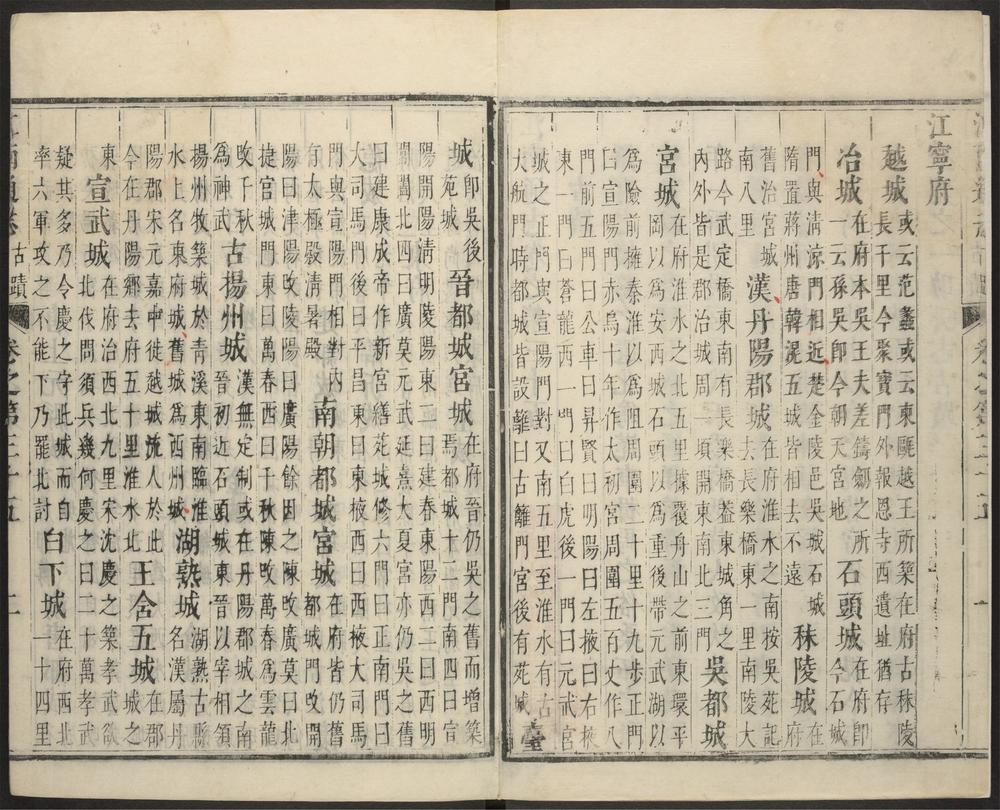 江寧府
越城 或云范蠡或云東甌越王所築在府古秣陵
長千里今聚寶門外報恩寺西遺址猶存
冶城 在府本吳王夫差鑄劒之所
一云孫吳卽今朝天宮地
石頭城 在府卽
今石城
門與清涼門相近楚金陵邑吳石城
隋置蔣州唐韓滉五城皆相去不遠
秣陵城 在
府
舊治宮城
南八里
漢丹陽郡城 在府淮水之南按吳苑記
去長樂橋東一里南陵大
路今武定橋東南有長樂橋葢東城角之
內外皆是郡治周一頃開東南北三門
吳都城
宮城 在府淮水之北五里據覆舟山之前東環平
岡以爲安西城石頭以爲重後帶元武湖以
爲險前擁秦淮以爲阻周圍二十里十九步正門
曰宣陽門赤烏十年作太初宮周圍五百丈作八
門前五門曰公車曰昇賢曰明陽曰左掖曰右掖
東一門曰蒼龍西一門曰白虎後一門曰元武宮
城之正門與宣陽門對又南五里至淮水有古
大航門時都城皆設離曰古離門宮後有苑城
臺
城 卽吳後
苑城
晉都城宮城 在府晉仍吳之舊而增築
焉都城十二門南四曰宣
陽開陽清明陵陽東三曰建春東陽西二曰西明
閶闔北四曰廣莫元武延熹大夏宮亦仍吳之舊
曰建康成帝作新宮繕苑城修六門曰正南門曰
大司馬門後曰平昌曰東掖西曰西掖大司馬
門與宣陽門相對內
有太極殿清暑殿
南朝都城宮城 在府皆仍舊
都城門改開
陽曰津陽改陵陽曰廣陽餘因之陳改廣莫曰北
捷宮城門東曰萬春西曰千秋陳改萬春爲雲龍
改千秋
爲神武
古揚州城 漢無定制或在丹陽郡城之南
晉初近石頭城東晉以宰相領
揚州牧築城於青溪東南臨淮
水上名東府城舊城爲西州城
湖熟城 湖熟古縣
名漢屬丹
陽郡宋元嘉中徙越城流人於此
今在丹陽鄉去府五十里淮水北
王舍五城 在郡
城之
東
宣武城 在府治西北九里宋沈慶之築孝武欲
北伐問須兵幾何慶之曰二十萬孝武
疑其多乃令慶之守此城而自
率六軍攻之不能下乃罷北討
白下城 在府西北
一十四里
古蹟
卷之第三十五
二